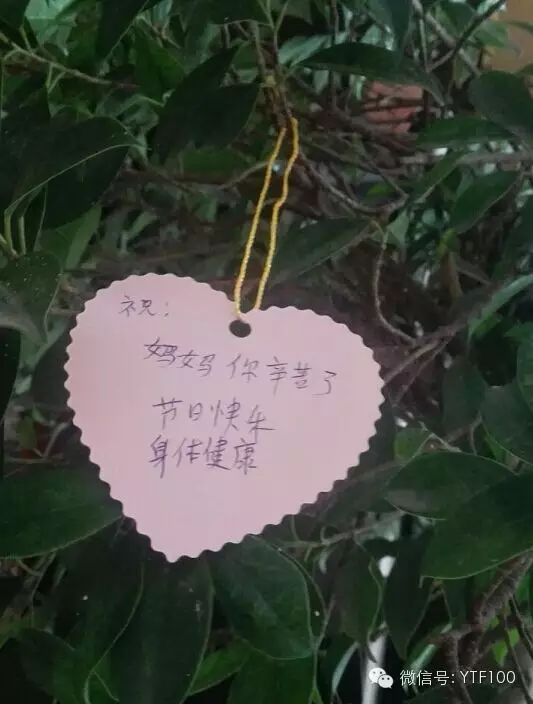 祝：
妈妈你辛苦了
节日快乐
身体健康
微信号: YTF100